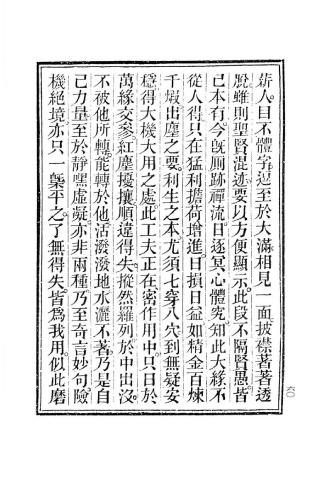 薪人。目不體字。逕至於大滿相見。一面披襟著著透
脫。雖則聖賢混迹。要以方便顯示。此段不隔賢愚。皆
已本有。今既厠跡禪流。日逐冥心體究。知此大緣不
從人得。只在猛利擔荷增進。日損日益。如精金百煉
千煅。出塵之要。利生之本。尤須七穿八穴。到無疑安
穩。得大機大用之處。此工夫正在密作用中。只日於
萬緣交參紅塵擾攘順違得失。摐然羅列。於中出沒。
不被他所轉。能轉於他。活潑潑地。水灑不著。乃是自
己力量。至於靜嘿虛凝。亦非兩種。乃至奇言妙句。險
機絕境。亦只一槩平之。了無得失。皆爲我用。似此磨
六〇